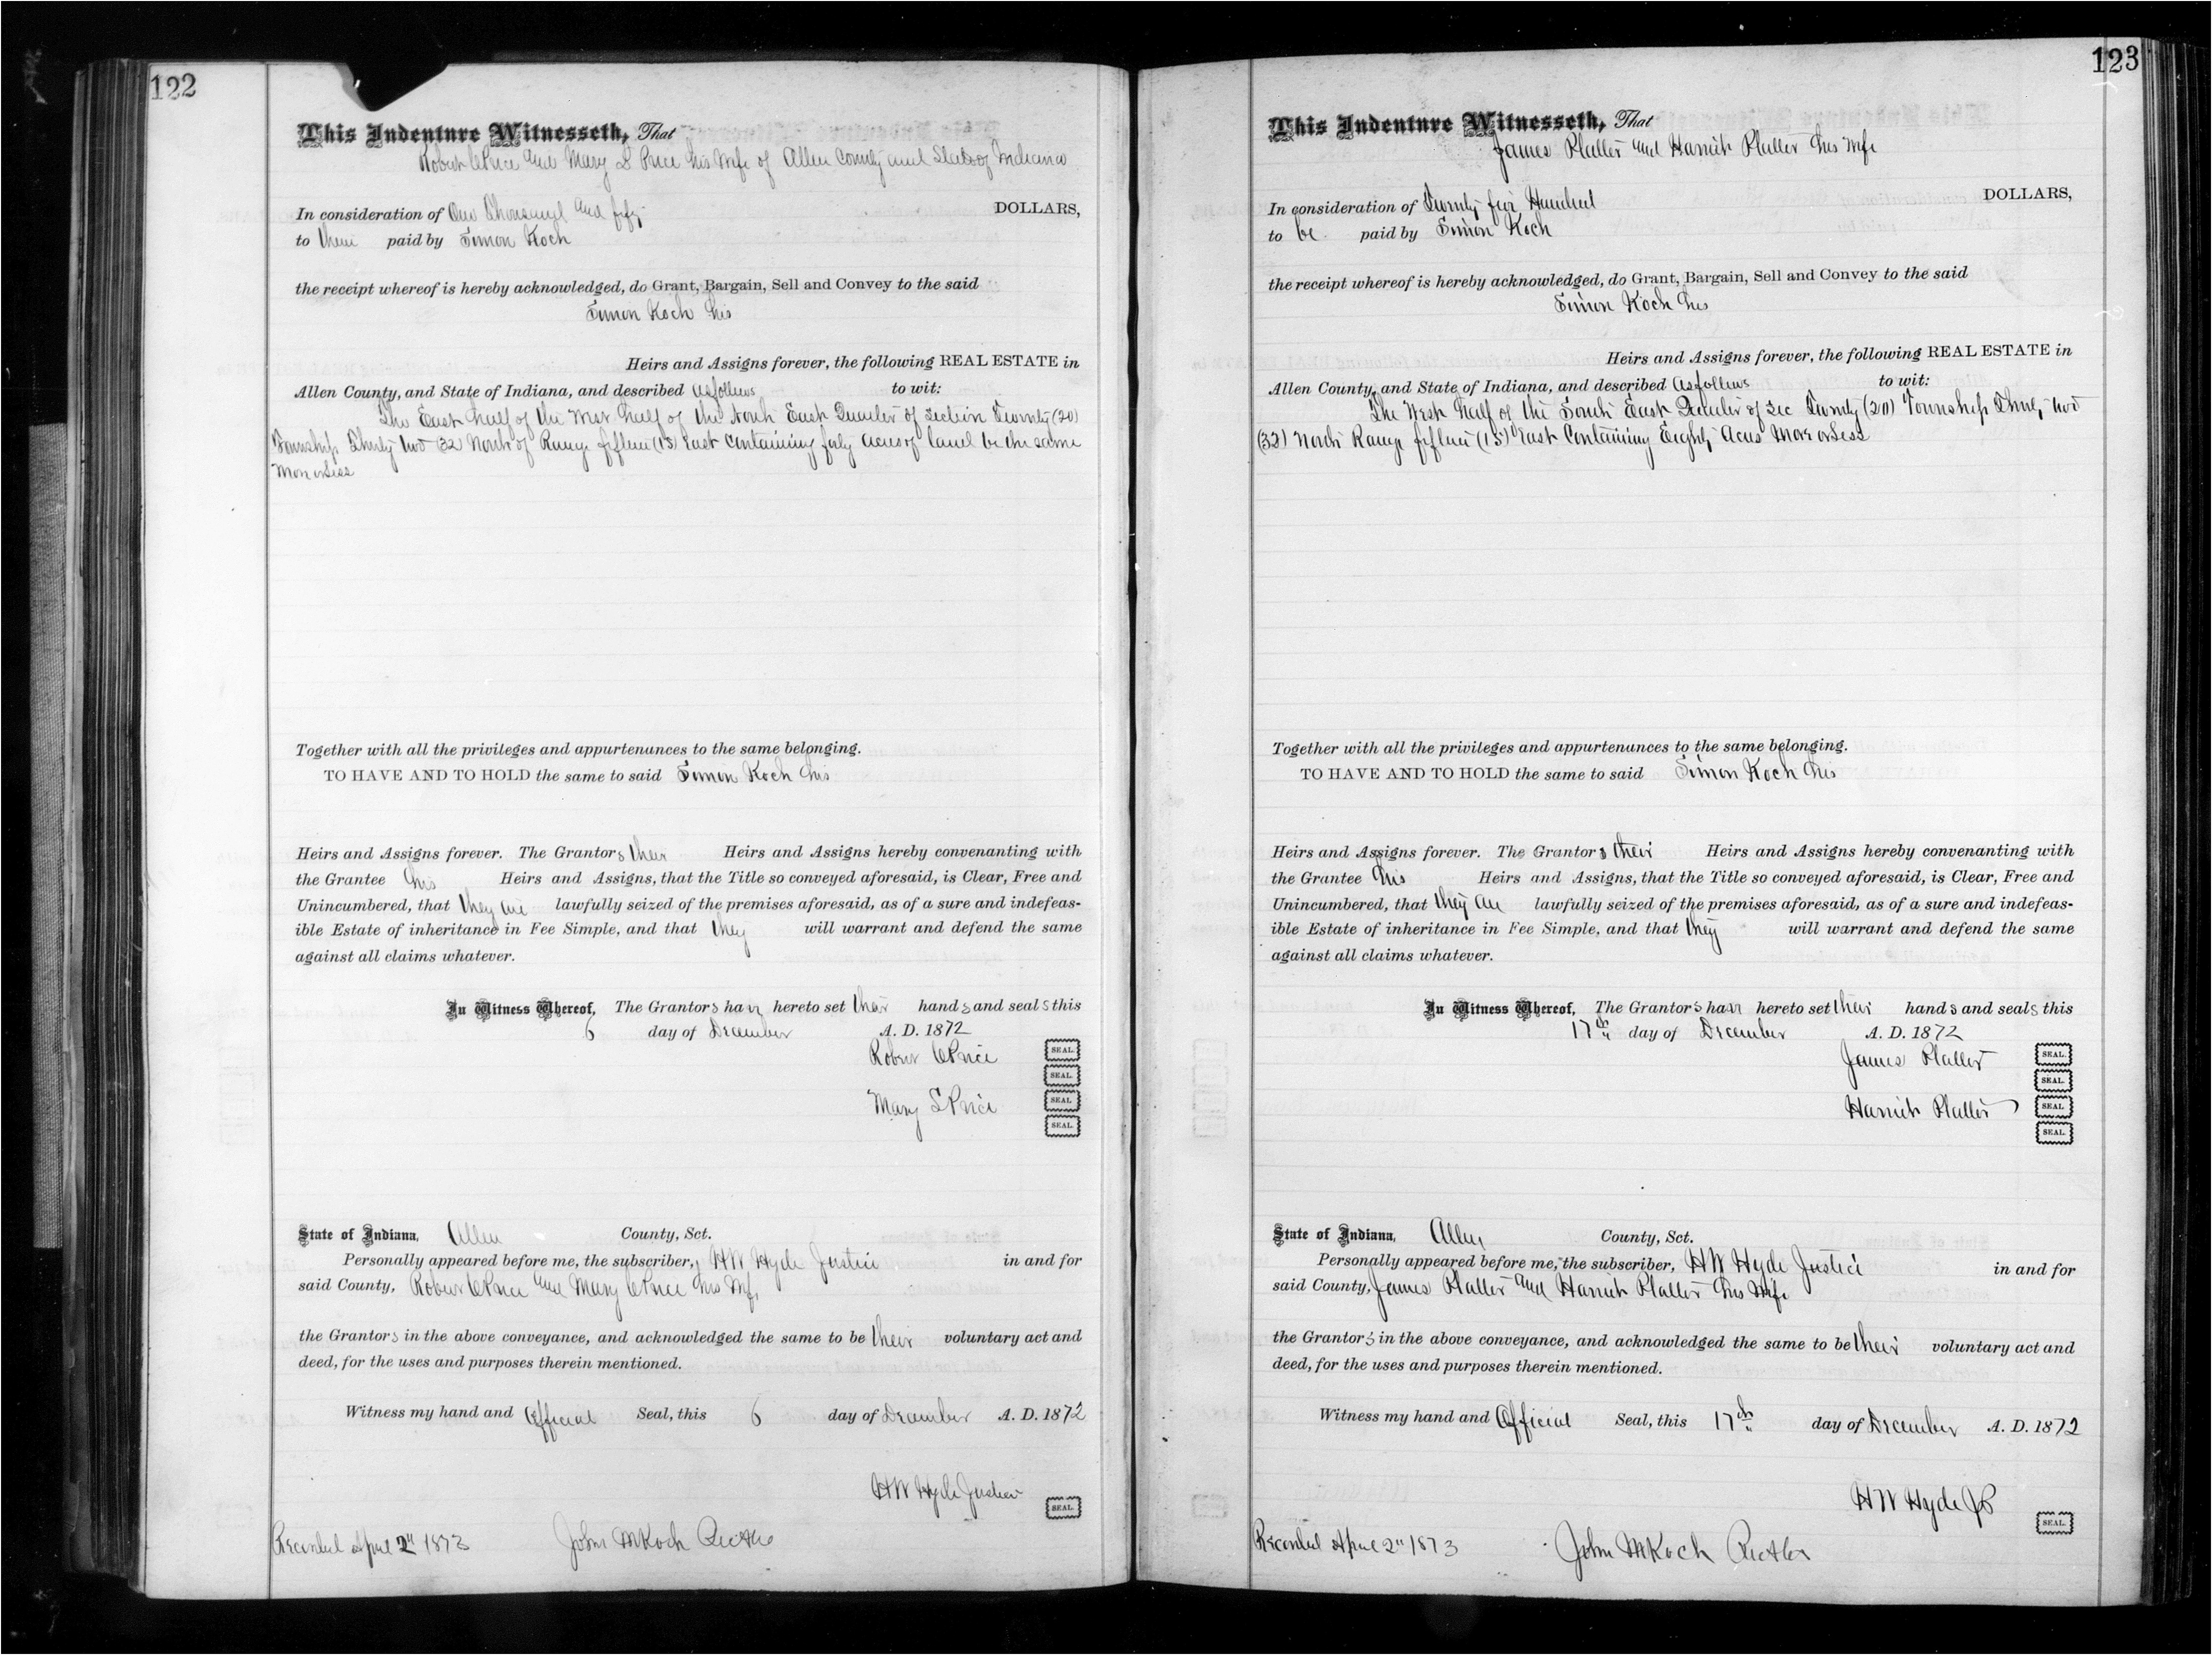 122
This Indenture Witnesseth, That
Robert C Price and Mary L Price his Wife of Allen County and State of Indiana
In consideration of One Thousand and fifty DOLLARS,
to them paid by Simon Koch
the receipt whereof is hereby acknowledged, do Grant, Bargain, Sell and Convey to the said
Simon Koch his
Heirs and Assigns forever, the following REAL ESTATE in
Allen County, and State of Indiana, and described as follows to wit:
The East half of the West half of the North East Quarter of Section Twenty (20)
Township Thirty two 32 North of Range fifteen (15) East Containing forty acres of land be the same
more or less
Together with all the privileges and appurtenances to the same belonging.
TO HAVE AND TO HOLD the same to said Simon Koch his
Heirs and Assigns forever. The Grantors their Heirs and Assigns hereby convenanting with
the Grantee his Heirs and Assigns, that the Title so conveyed aforesaid, is Clear, Free and
Unincumbered, that they are lawfully seized of the premises aforesaid, as of a sure and indefeas-
ible Estate of inheritance in Fee Simple, and that they will warrant and defend the same
against all claims whatever.
In Witness Whereof, The Grantors have hereto set their hands and seals this
6 day of December A. D. 1872
Robert C Price SEAL.
SEAL.
Mary L Price SEAL.
SEAL.
State of Indiana, Allen County, Sct.
Personally appeared before me, the subscriber, H W Hyde Justice in and for
said County, Robert C Price and Mary C Price his Wife
the Grantors in the above conveyance, and acknowledged the same to be their voluntary act and
deed, for the uses and purposes therein mentioned.
Witness my hand and Official Seal, this 6 day of December A. D. 1872
H W Hyde Justice SEAL.
Recorded April 2" 1873 John M Koch
123
This Indenture Witnesseth, That
James Platter and Harriet Platter his Wife
In consideration of Twenty five Hundred DOLLARS,
to be paid by Simon Koch
the receipt whereof is hereby acknowledged, do Grant, Bargain, Sell and Convey to the said
Simon Koch his
Heirs and Assigns forever, the following REAL ESTATE in
Allen County, and State of Indiana, and described as follows to wit:
The West half of the South East Quarter of Sec Twenty (20) Township Thirty two
(32) North Range fifteen (15) East Containing Eighty Acres More or Less
Together with all the privileges and appurtenances to the same belonging.
TO HAVE AND TO HOLD the same to said Simon Koch his
Heirs and Assigns forever. The Grantors their Heirs and Assigns hereby convenanting with
the Grantee his Heirs and Assigns, that the Title so conveyed aforesaid, is Clear, Free and
Unincumbered, that they are lawfully seized of the premises aforesaid, as of a sure and indefeas-
ible Estate of inheritance in Fee Simple, and that they will warrant and defend the same
against all claims whatever.
In Witness Whereof, The Grantors have hereto set their hands and seals this
17th day of December A. D. 1872
James Platter SEAL.
SEAL.
Harriet Platter SEAL
SEAL.
State of Indiana, Allen County, Sct.
Personally appeared before me, the subscriber, H W Hyde Justice in and for
said County, James Platter and Harriet Platter his Wife
the Grantors in the above conveyance, and acknowledged the same to be their voluntary act and
deed, for the uses and purposes therein mentioned.
Witness my hand and Official Seal, this 17th day of December A. D. 1872
H W Hyde JP SEAL.
Recorded April 2" 1873 John M Koch